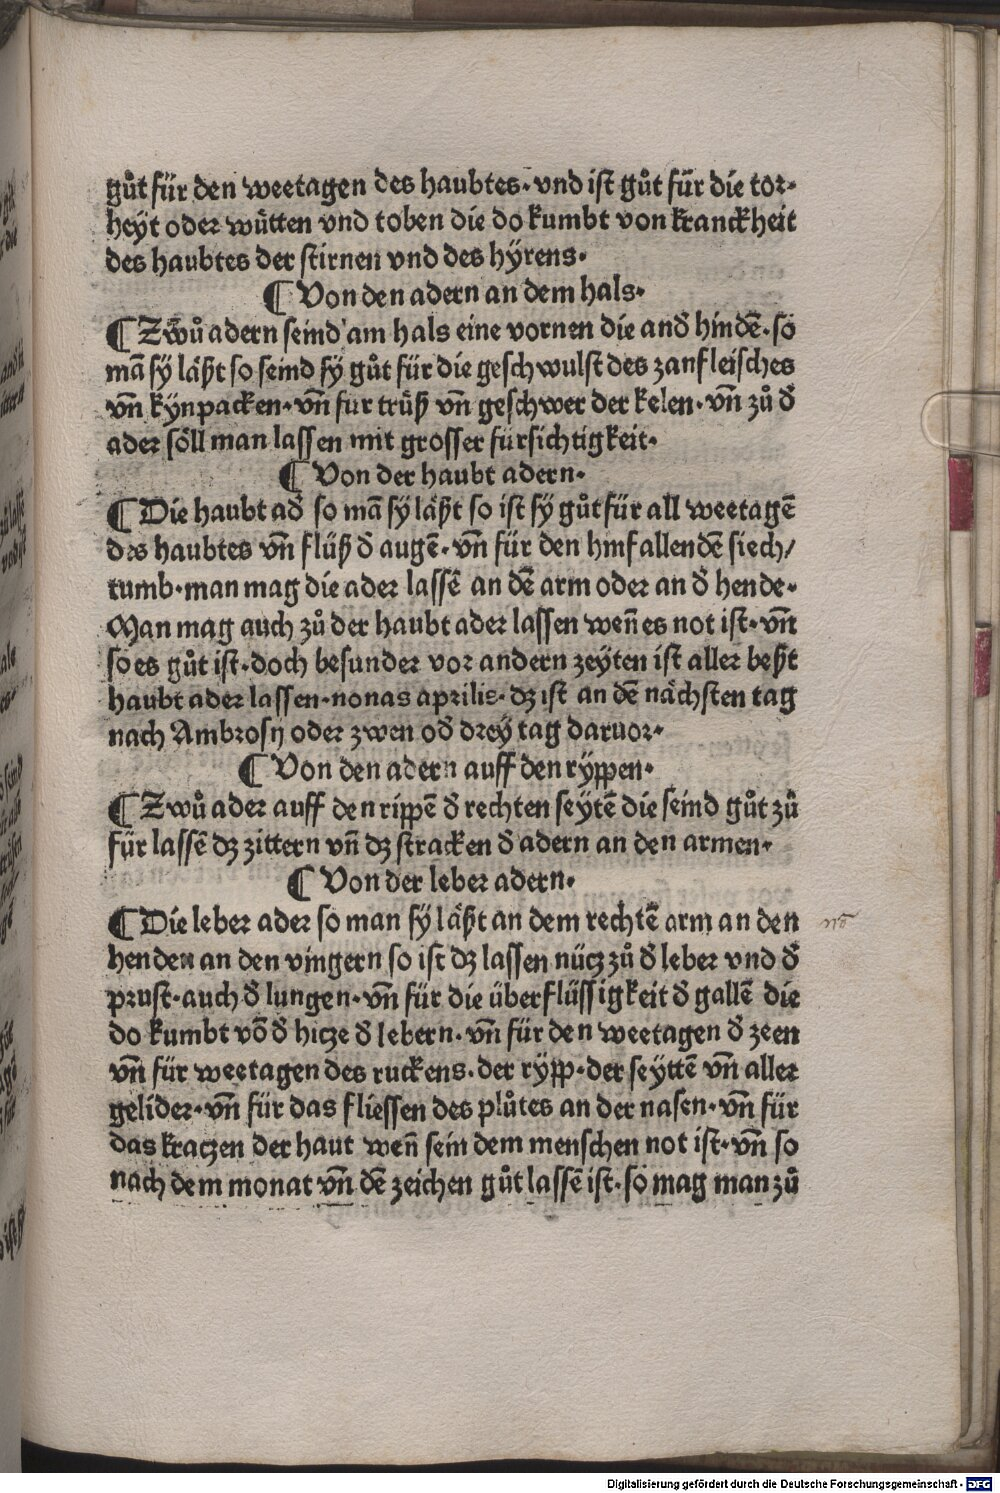 gůt für den weetagen des haubtes· vnd ist gůt für die tor⸗
heyt oder wůtten vnd toben die do kumbt von kranckheit
des haubtes der stirnen vnd des hyrens·
¶ Von den adern an dem hals·
¶ Zwů adern seind am hals eine vornen die and̕ hindē· so
mā sy läßt so seind sy gůt für die geschwulst des zanfleisches
vn̄ kynpacken· vn̄ fur trůß vn̄ geschwer der kelen· vn̄ zů d̕
ader söll man lassen mit grosser fürsichtigkeit·
¶ Von der haubt adern·
¶ Die haubt ad̕ so mā sy läßt so ist sy gůt für all weetagē
des haubtes vn̄ flüß d̕ augē· vn̄ für den hinfallendē siech/
tumb· man mag die ader lassē an dē arm oder an d̕ hende·
Man mag auch zů der haubt ader lassen wen̄ es not ist· vn̄
so es gůt ist· doch besunder vor andern zeyten ist aller beßt
haubt ader lassen· nonas aprilis· dz ist an dē nächsten tag
nach Ambrosy oder zwen od̕ drey tag daruor·
¶ Von den adern auff den ryppen·
¶ Zwů ader auff den rippē d̕ rechten seytē die seind gůt zů
für lassē dz zittern vn̄ dz stracken d̕ adern an den armen·
¶ Von der leber adern·
¶ Die leber ader so man sy läßt an dem rechtē arm an den
henden an den vingern so ist dz lassen nücz zů d̕ leber vnd d̕
prust· auch d̕ lungen· vn̄ für die überflüssigkeit d̕ gallē die
do kumbt vō d̕ hicze d̕ lebern· vn̄ für den weetagen d̕ zeen
vn̄ für weetagen des ruckens· der rypp· der seyttē vn̄ aller
gelider· vn̄ für das fliessen des plůtes an der nasen· vn̄ für
das kraczen der haut wen̄ sein dem menschen not ist· vn̄ so
nach dem monat vn̄ dē zeichen gůt lassē ist· so mag man zů
Digitalisierung gefördert durch die Deutsche Forschungsgemeinschaft - DFG